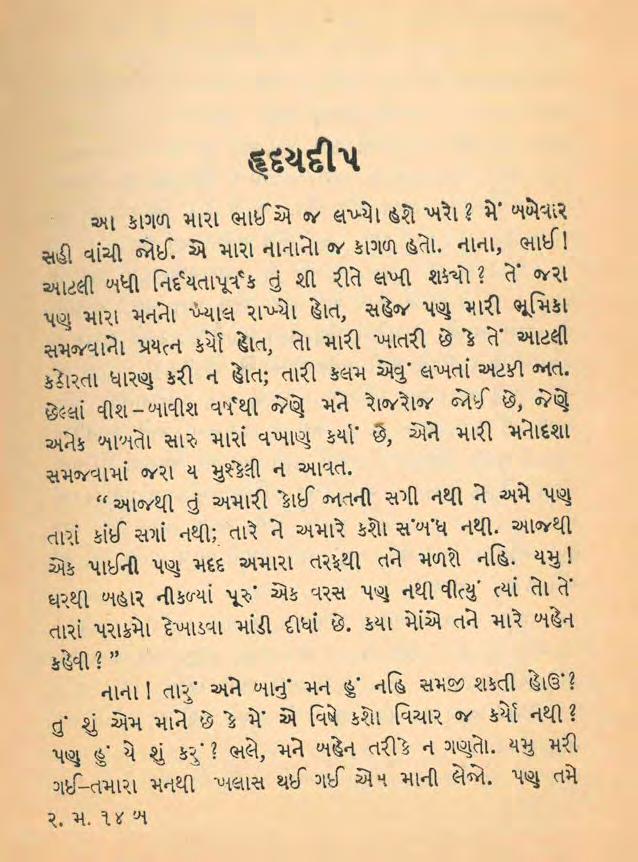 હૃદયદીપ
આ કાગળ મારા ભાઈએ જ લખ્યો હશે ખરો? મેં બબેવાર
સહી વાંચી જોઈ. એ મારા નાનાનો જ કાગળ હતો. નાના, ભાઈ!
આટલી બધી નિર્દયતાપૂર્વક તું શી રીતે લખી શક્યો? તેં જરા
પણ મારા મનનો ખ્યાલ રાખ્યો હોત, સહેજ પણ મારી ભૂમિકા
સમજવાનો પ્રયત્ન કર્યો હોત, તો મારી ખાતરી છે કે તેં આટલી
કઠોરતા ધારણ કરી ન હોત; તારી કલમ એવું લખતાં અટકી જાત.
છેલ્લાં વીશ–બાવીશ વર્ષથી જેણે મને રોજરોજ જોઈ છે, જેણે
અનેક બાબતો સારુ મારાં વખાણ કર્યાં છે, એને મારી મનોદશા
સમજવામાં જરા ય મુશ્કેલી ન આવત.
“આજથી તું અમારી કોઈ જાતની સગી નથી ને અમે પણ
તારાં કાંઈ સગાં નથી; તારે ને અમારે કશો સંબંધ નથી. આજથી
એક પાઈની પણ મદદ અમારા તરફથી તને મળશે નહિ. યમુ!
ઘરથી બહાર નીકળ્યાં પૂરું એક વરસ પણ નથી વીત્યું ત્યાં તો તેં
તારાં પરાક્રમો દેખાડવા માંડી દીધાં છે. કયા મોંએ તને મારે બહેન
કહેવી?”
નાના! તારું અને બાનું મન હું નહિ સમજી શકતી હોઉં?
તું શું એમ માને છે કે મેં એ વિષે કશો વિચાર જ કર્યો નથી?
પણ હું યે શું કરું? ભલે, મને બહેન તરીકે ન ગણતો. યમુ મરી
ગઈ–તમારા મનથી ખલાસ થઈ ગઈ એમ માની લેજો. પણ તમે
ર. મ. ૧૪ બ